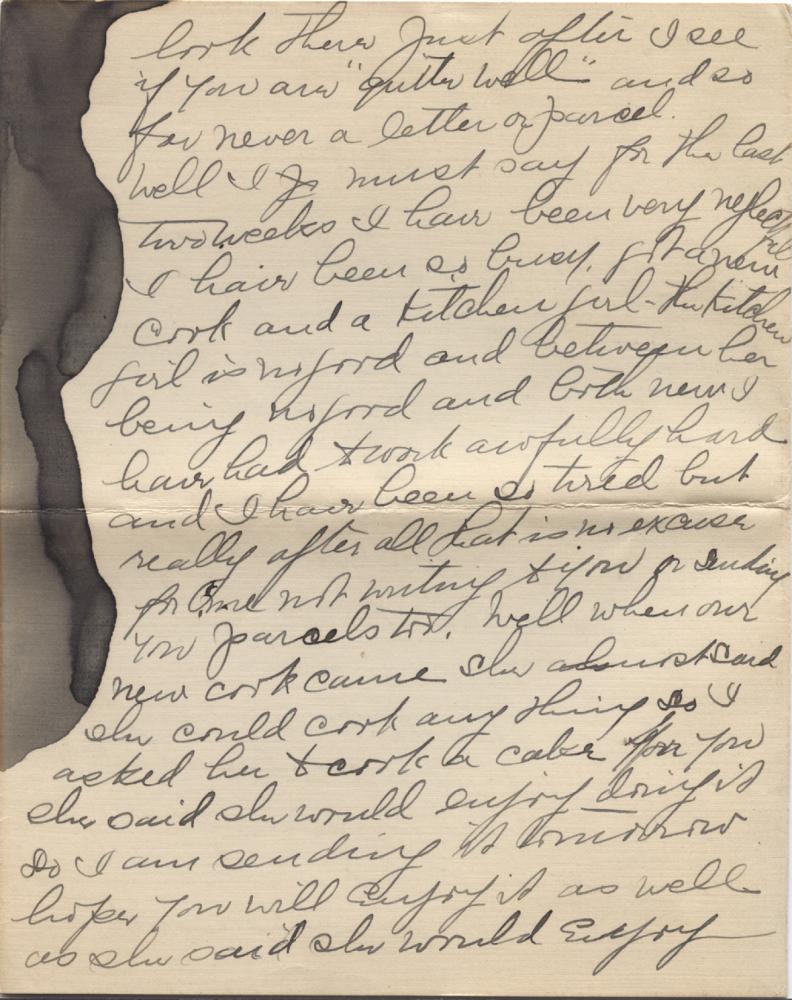 look there just after I see
if you are "quite well" and so
far never a letter or parcel.
Well I must say for the last
two weeks I have been very neglectful
I have been so busy, got a new
cook and a kitchen girl - the kitchen
girl is no good and between her
being no good and both new I
have had to work awfully hard
and I have been so tired but
really after all that is no excuse
for me not writing to you or sending
you parcels too. Well when our
new cook came she almost said
she could cook any thing so I
asked her to cook a cake for you
she said she would enjoy doing it
so I am sending it tomorrow
hope you will enjoy it as well
as she said she would enjoy